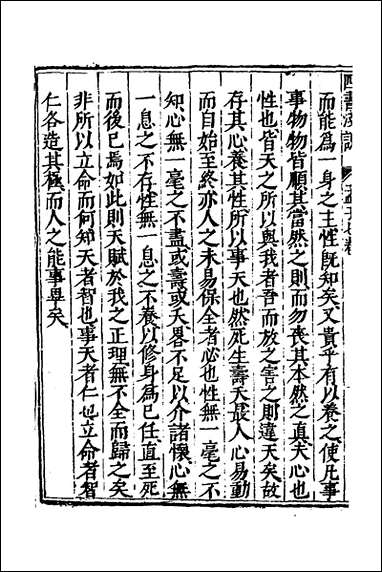 四書淺說
孟子七卷
而能為一身之主性旣知矣又貴乎有以養之使凡事
事物物皆順其當然之則而勿喪其本然之真夫心也
性也皆天之所以與我者吾而放之害之則違天矣故
存其心養其性所以事天也然死生壽夭最人心易動
而自始至終亦人之未易保全者必也性無一毫之不
知心無一毫之不盡或壽或夭畧不足以介諸懷心無
一息之不存性無一息之不養以修身為已任直至死
而後已焉如此則天賦於我之正理無不全而歸之矣
非所以立命而何知天者智也事天者仁也立命者智
仁各造其極而人之能事畢矣